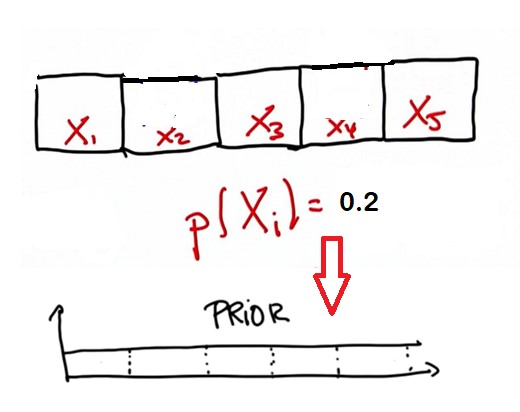 X₁ X₂ X₃ X₄ X₅
p(Xᵢ) = 0.2
PRIOR